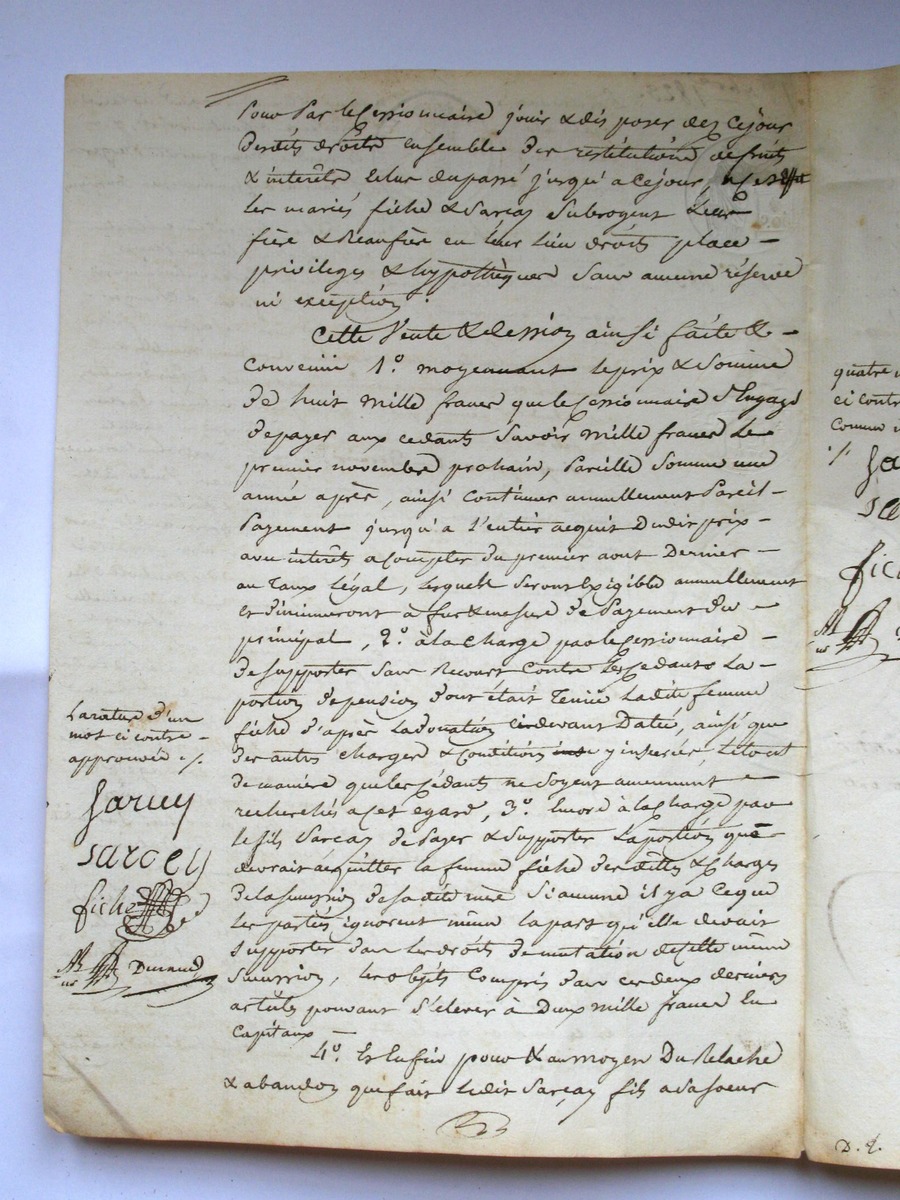 Pour par le Cessionnaire jouir & disposer dez Cejour
desdits droits ensemble des restitutions de fruits
& intérêts Echus du passé jusqu'a cejour, a Cet Effet
les mariés fiche & Sarcey Subrogent Leur
frère & Beaufrère en leur lieu droits place -
privileges & hypothèques Sans aucune réserve
ni exception.
Cette Vente & Cession ainsi faite & -
Convenüe 1.º moyennant le prix & Somme
De huit mille francs que le Cessionnaire S'Engage
de payer aux cedants Savoir mille francs Le
premier novembre prohain, Pareille Somme une
année après, ainsi Continuer annuellement Pareil -
Payement jusqu'a l'entier acquit Dudit prix -
avec intérêts a Compter du premier aout Dernier -
au Taux Légal, lesquels Seront Exigibles annuellement
Et diminueront à fur & mesure de Payement du -
principal, 2.º à la Charge par le Cessionnaire -
de supporter Sans Recours Contre Les Cedants La -
portion de pension dont était Tenüe Ladite femme
fiche d'après La donation Cidevant Datée, ainsi que
des autres charges & Conditions y inserées, Le tout
de manière que les Cédants ne Soyent aucunement
recherchés a Cet egard, 3.º Encore à la Charge par
le fils Sarcey de Payer & Supporter La portion que
devrait acquitter la femme fiche des dettes & Charges
de la Succession de Sadite mère Si aucune il y a Ce que
Les parties ignorent même la part qu'elle devait
Supporter dans Les droits de mutation de Cette même
Succession, les objets Compris dans ces deux derniers
articles pouvant S'élever à Deux mille francs En
Capitaux -
4.º Et Enfin pour & au moyen Du Relache
& abandon que fait Ledit Sarcey fils a Sa Soeur
La rature d'un
mot ci contre -
approuvée ./.
Sarcey
sarcey
fiche
Durand
quatre
ci contr
Comme
./.
Sa
sa
fich
D. L.